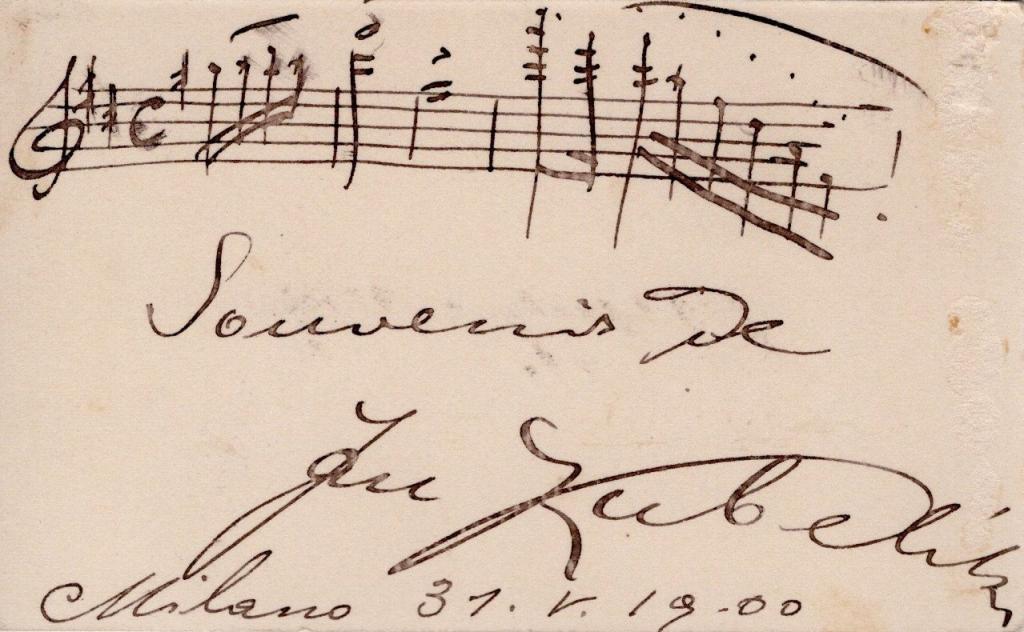 Souvenir de
Jan Kubelík
Milano 31. V. 19-00